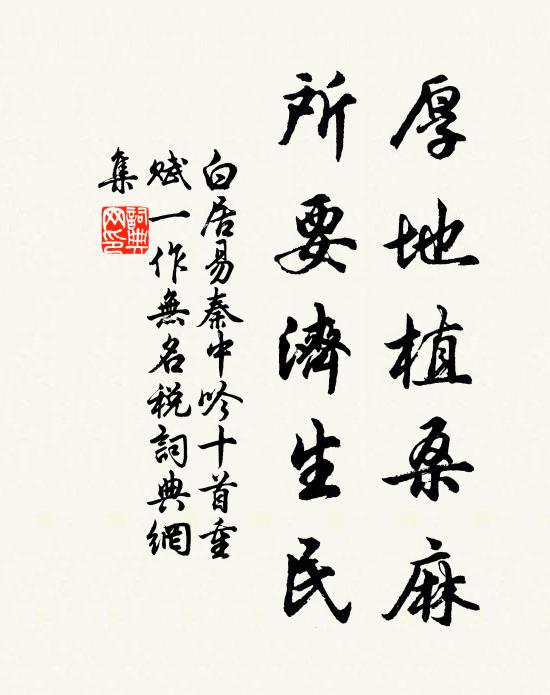 厚地植桑麻
所要濟生民
白居易秦中吟十首重
賦一作無名税詞典網
集
詞典網印